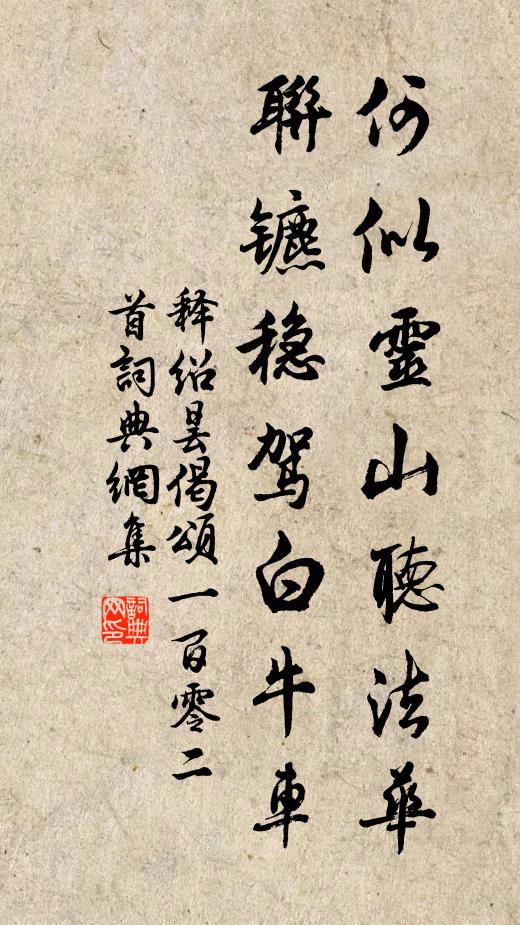 何似靈山聽法華
聯鑣穩駕白牛車
释绍昙偈頌一百零二
首詞典網集
詞典網印